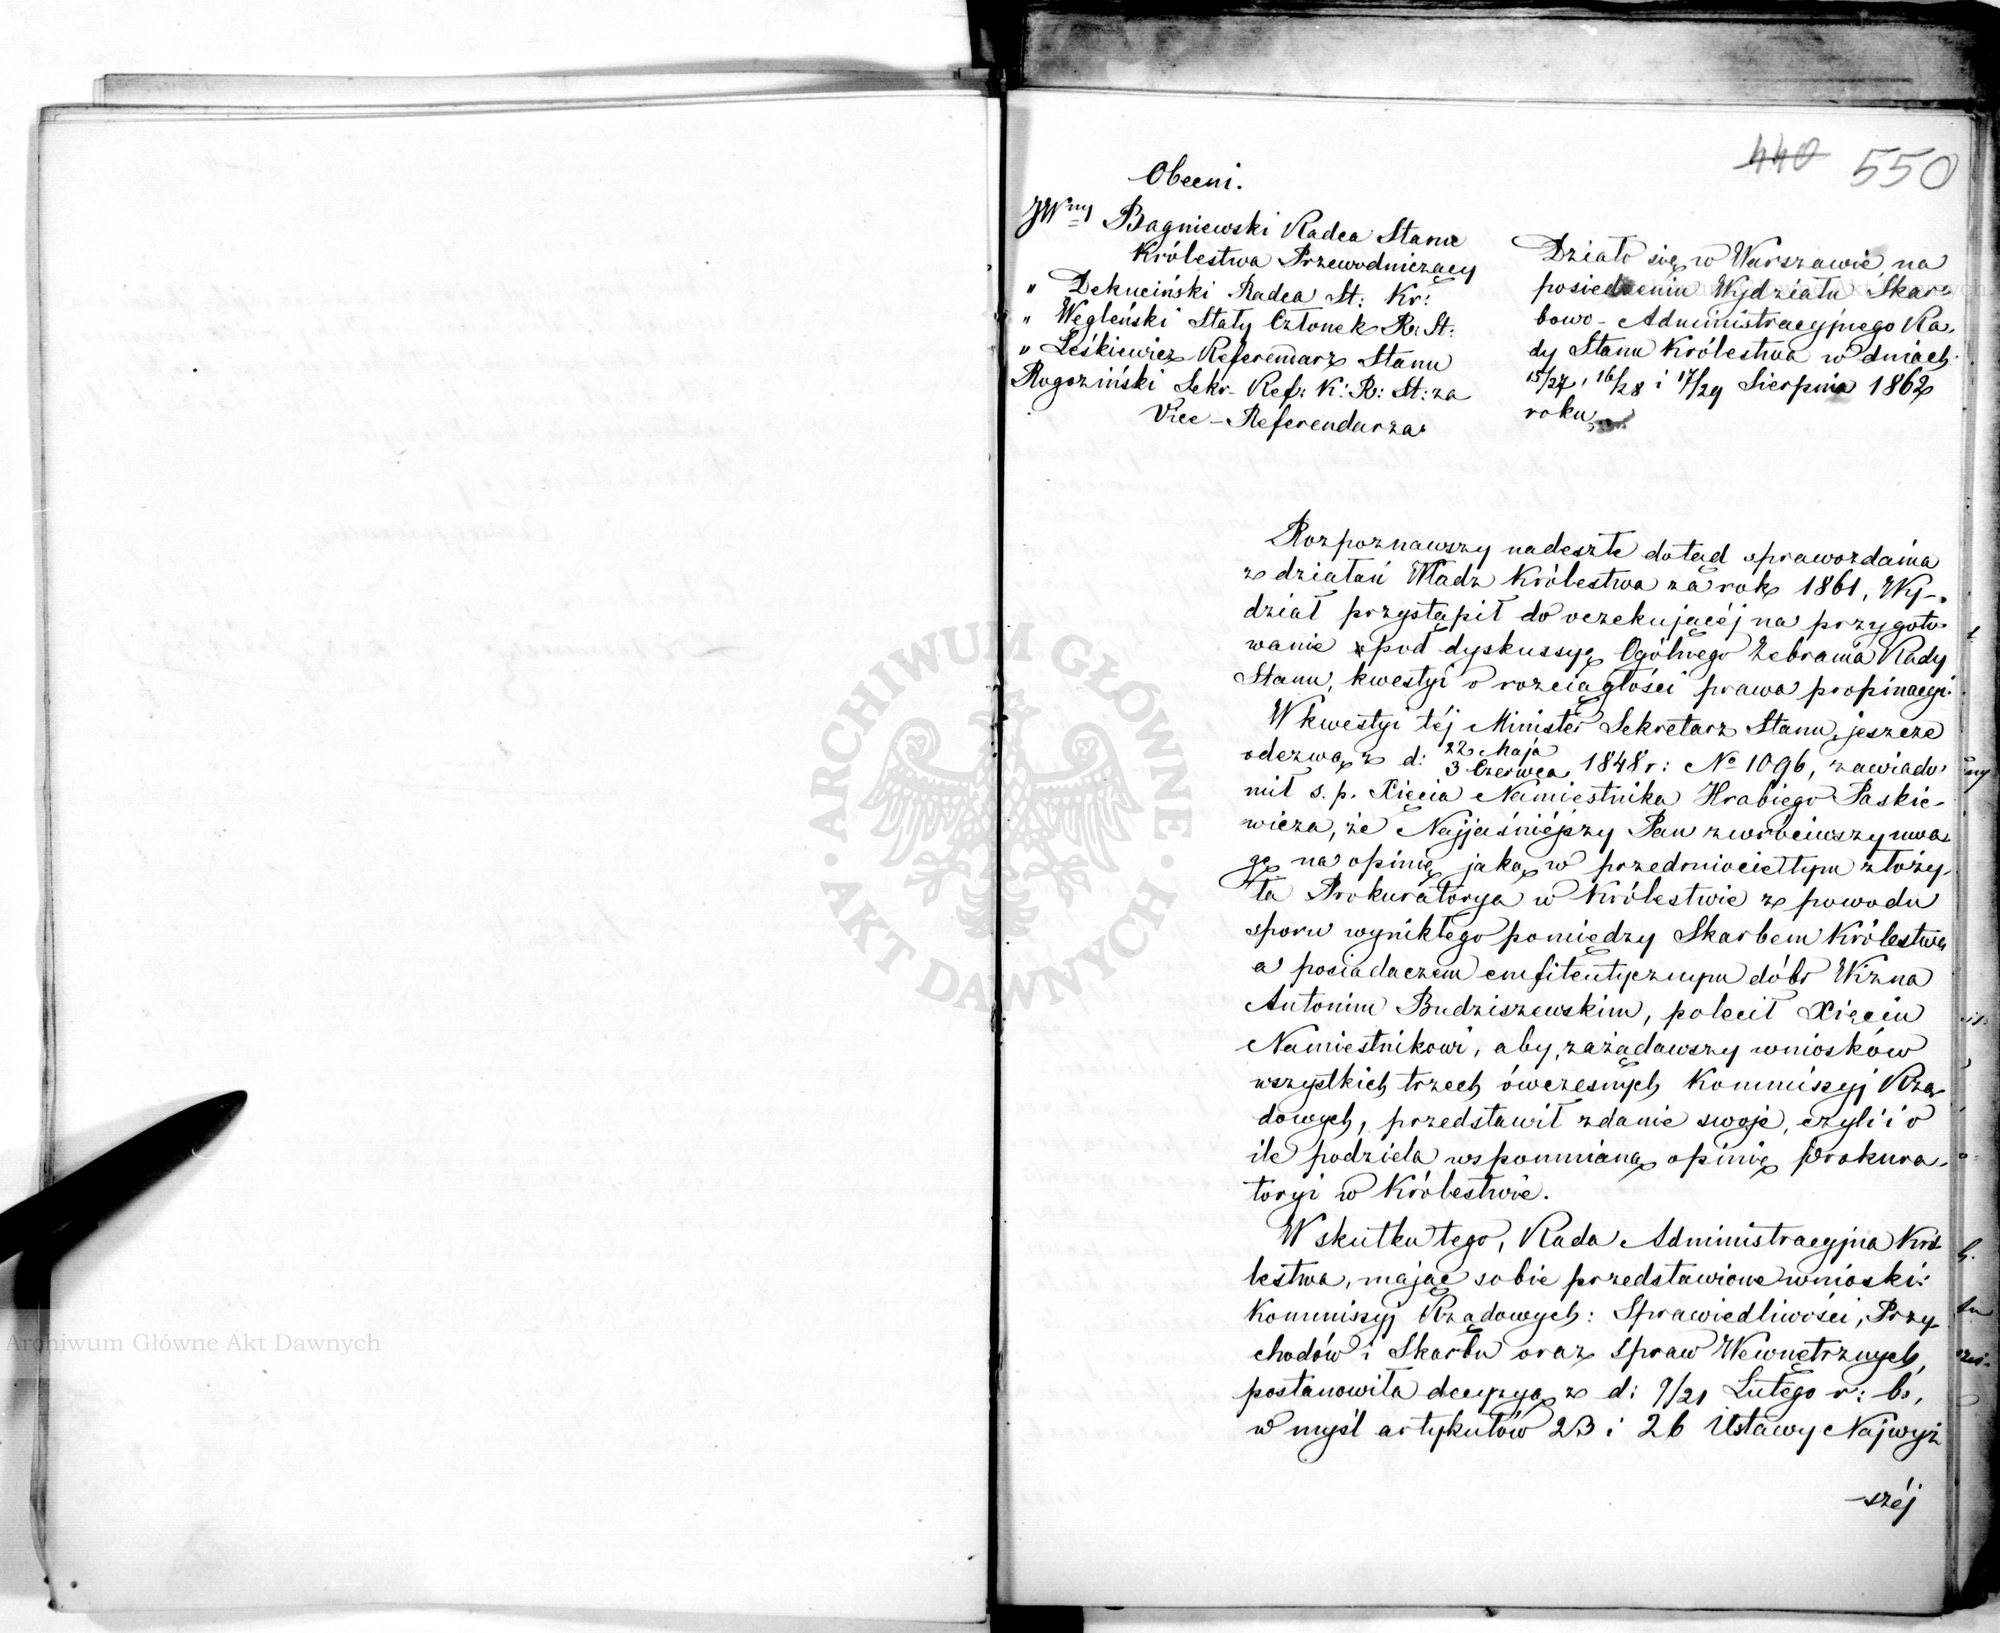 440 550
Obecni.
JWny Bagniewski Radca Stanu
Królestwa Przewodniczący
" Dekuciński Radca St: Kr:
" Węgleński Stały Członek R: St:
" Leśkiewicz Referendarz Stanu
Rogoziński Sekr- Ref: K: R: St: za
Vice-Referendarza
Działo się w Warszawie na
posiedzeniu Wydziału Skar-
bowo-Administracyjnego Ra-
dy Stanu Królestwa w dniach
15/27, 16/28 i 17/29 Sierpnia 1862
roku
Rozpoznawszy nadeszłe dotąd sprawozdania
z działań Władz Królestwa za rok 1861, Wy-
dział przystąpił do oczekującéj na przygoto-
wanie pod dyskussyę Ogólnego Zebrania Rady
Stanu, kwestyi o rozciągłości prawa propinacyi.
W kwestyi téj Minister Sekretarz Stanu, jeszcze
odezwą z d: 22 Maja/3 Czerwca 1848 r: No 1096, zawiado-
mił s. p. Xięcia Namiestnika Hrabiego Paskie-
wicza, że Najjaśniéjszy Pan zwróciwszy uwa-
gę na opinię jaką w przedmiocie tym złoży-
ła Prokuratorya w Królestwie z powodu
sporu wynikłego pomiędzy Skarbem Królestwa
a posiadaczem emfiteutycznym dóbr Wizna
Antonim Budziszewskim, polecił Xięciu
Namiestnikowi, aby, zażądawszy wniosków
wszystkich trzech ówczesnych Kommissyj Rzą-
dowych, przedstawił zdanie swoje, czyli i o
ile podziela wspomnianą opinię Prokura-
toryi w Królestwie.
W skutku tego, Rada Administracyjna Kró-
lestwa, mając sobie przedstawione wnioski:
Kommissyj Rządowych: Sprawiedliwości, Przy-
chodów i Skarbu oraz Spraw Wewnętrznych,
postanowiła decyzyą z d: 9/21 Lutego r: b:,
w myśl artykułów 23 i 26 Ustawy Najwyż
-széj
ARCHIWUM GŁÓWNE AKT DAWNYCH
Archiwum Główne Akt Dawnych